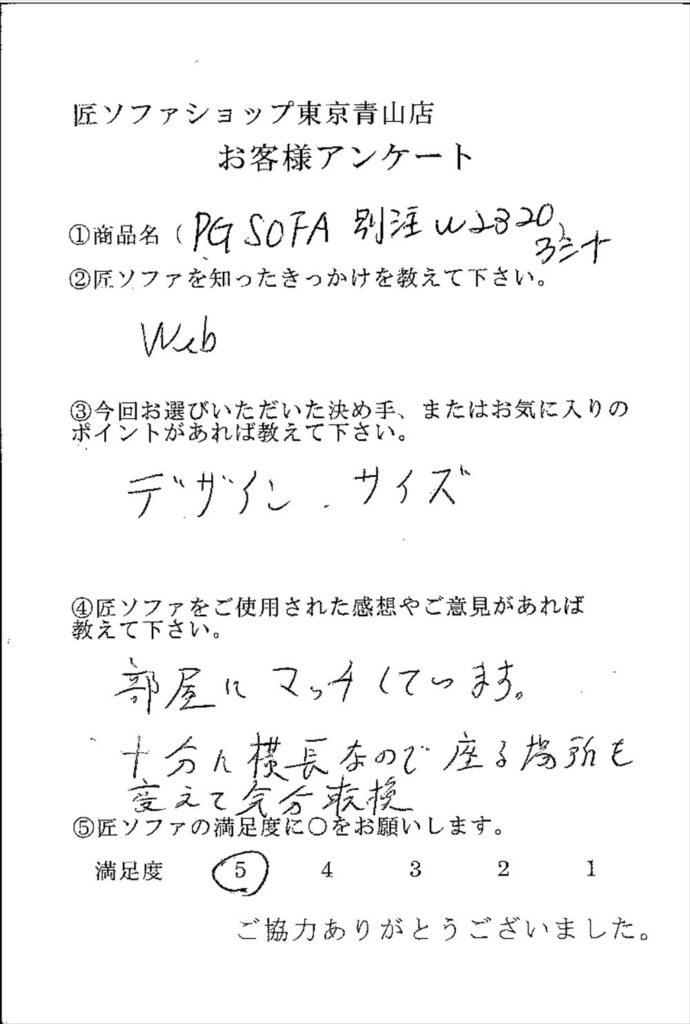 匠ソファショップ東京青山店
お客様アンケート
①商品名(PG SOFA 別注 W2320)
②匠ソファを知ったきっかけを教えて下さい。
Web
③今回お選びいただいた決め手、またはお気に入りの
ポイントがあれば教えて下さい。
デザイン、サイズ
④匠ソファをご使用された感想やご意見があれば
教えて下さい。
部屋にマッチしています。
十分に横長なので座る場所も
変えて気分転換
⑤匠ソファの満足度に○をお願いします。
満足度 5 4 3 2 1
ご協力ありがとうございました。